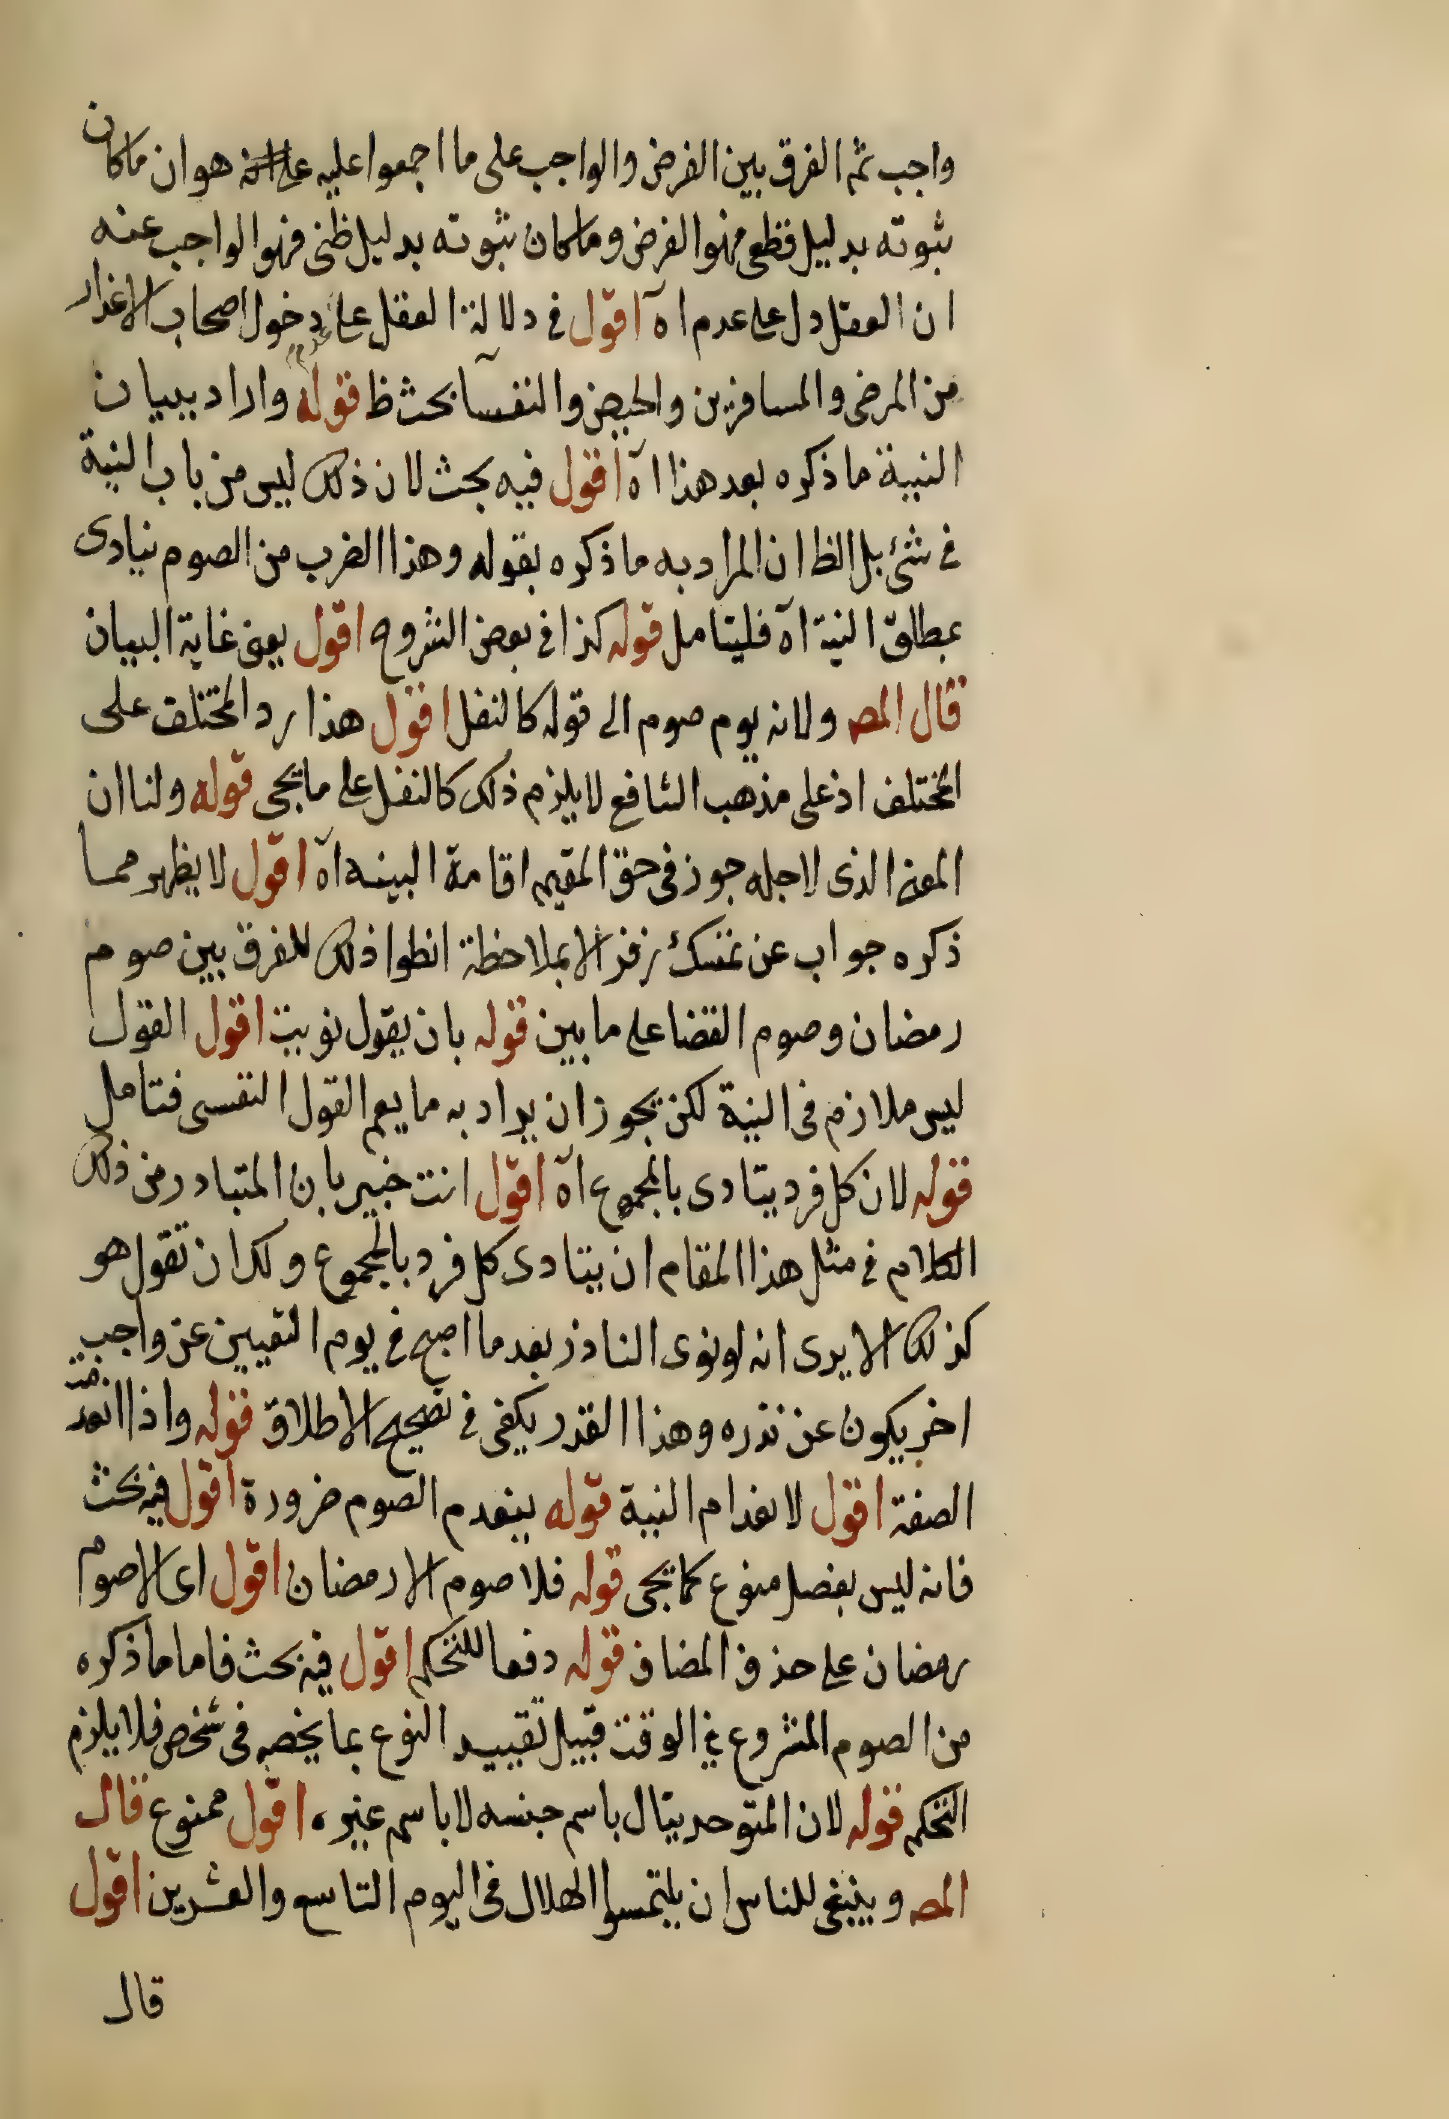 واجب ثم الفرق بين الفرض والواجب على ما اجمعوا عليه هو ان ما كان
ثبوته بدليل قطعي فهوا لفرض وما كان ثبوته بدليل ظني فهوا لواجب عنه
ان العقل دل على عدم اه اقول في دلالة العقل على عدم دخول اصحاب الاعذار
من المرضى والمسافرين والحيض والنفسآ بحث ظ قوله واراد ببيان
النية ما ذكره بعد هذا اه اقول فيه بحث لان ذلك ليس من باب النية
في شئ بل الظ ان المراد به ما ذكره بقوله وهذا الضرب من الصوم يتادى
بمطلق النية اه فليتامل قوله كذا في بعض الشروح اقول يعني غاية البيان
قال المصه ولانه يوم صوم الى قوله كالنفل اقول هذا رد المختلف على
المختلف اذ على مذهب الشافع لا يلزم ذلك كالنفل على ما يجي قوله ولنا ان
المعنى الذى لاجله جوز في حق المقيم اقامة البينه اه اقول لا يظهر مما
ذكره جواب عن تمسك زفر الا بملاحظة انطوا ذلك للفرق بين صوم
رمضان وصوم القضا على ما بين قوله بان يقول نويت اقول القول
ليس ملازم في النية لكن يجوز ان يراد به ما يعم القول النفسى فتامل
قوله لان كل فرد يتادى بالمجموع اه اقول انت خبير بان المتبادر من ذلك
الكلام في مثل هذا المقام ان يتادى كل فرد بالمجموع ولك ان تقول هو
كذلك الا يرى انه لو نوى الناذر بعد ما اصبح في يوم التعيين عن واجب
اخر يكون عن نذره وهذا القدر يكفي في تصحيح الاطلاق قوله واذا انعدمت
الصفة اقول لانعدام النية قوله ينعدم الصوم ضرورة اقول فيه بحث
فانه ليس بفصل منوع كما يجى قوله فلا صوم الا رمضان اقول اى الا صوم
رمضان على حذف المضاف قوله دفعا للتحكم اقول فيه بحث فاما ما ذكره
من الصوم المشروع في الوقت قبيل تقييد النوع بما يخصه في شخص فلا يلزم
التحكم قوله لان المتوحد ينال باسم جنسه لا باسم غيره اقول ممنوع قال
المصه وينبغى للناس ان يلتمسوا الهلال في اليوم التاسع والعشرين اقول
قال